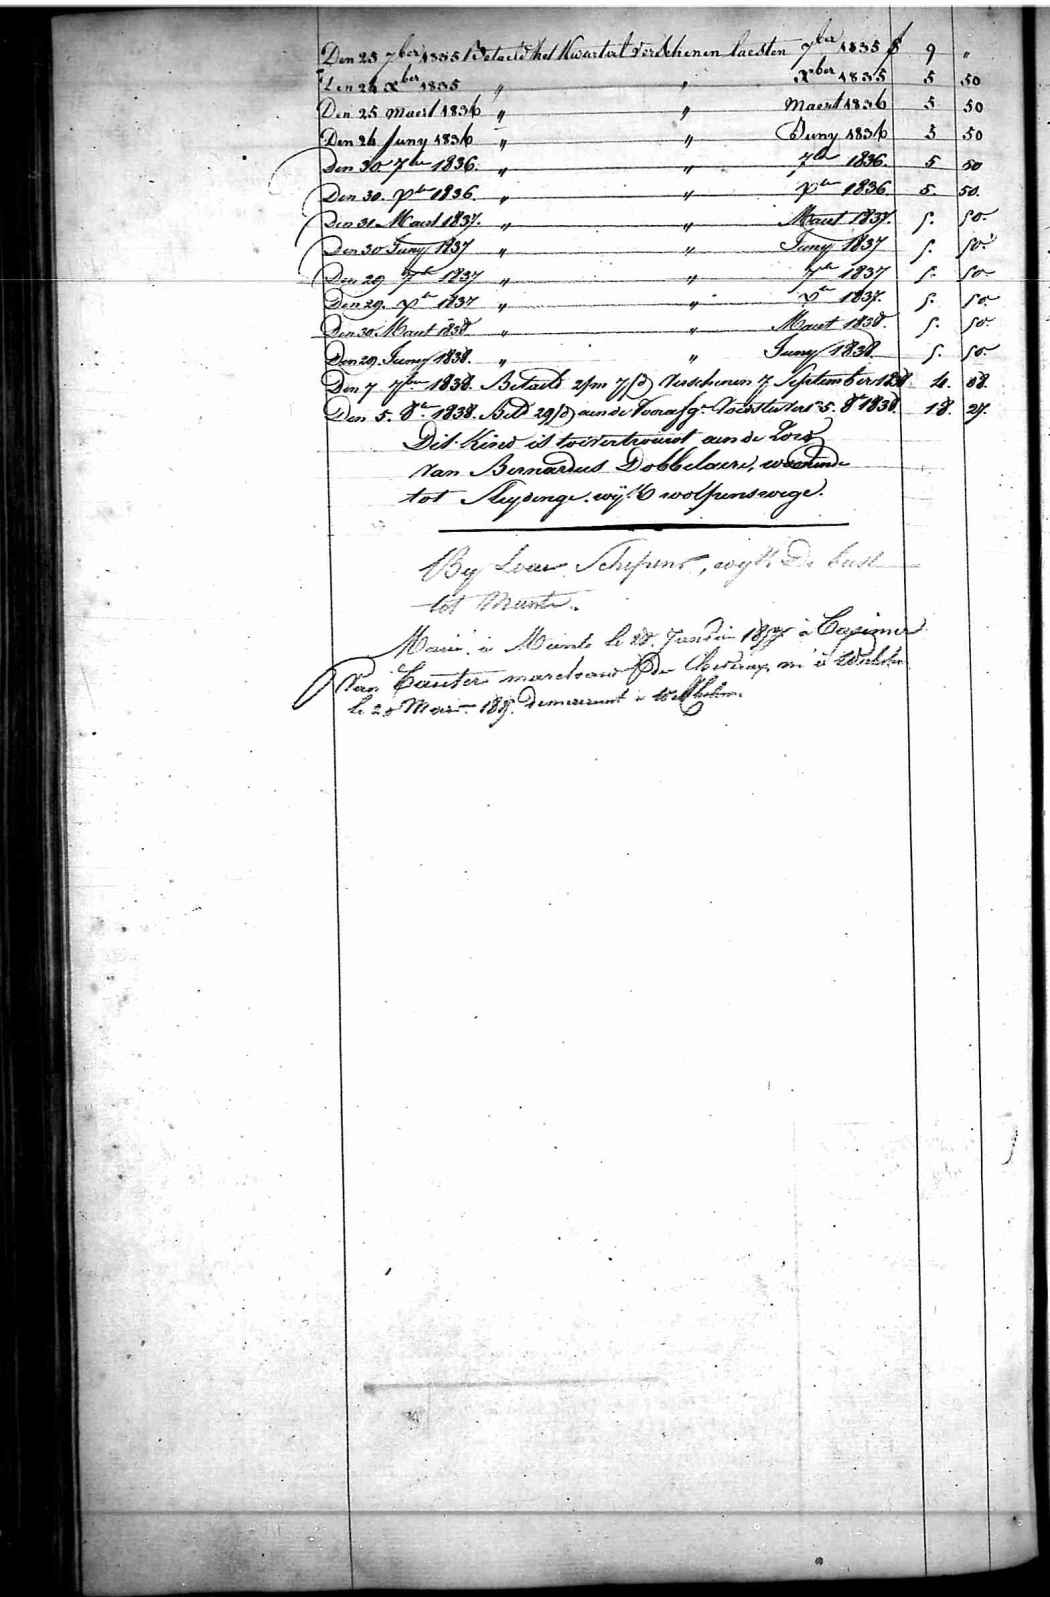 Den 25 7ber 1835 Betaeld het Kwartael verschenen laesten 7ber 1835 f 9 "
Den 26 Xber 1835 " " Xber 1835 5 50
Den 25 Maert 1836 " " Maert 1836 5 50
Den 26 Juny 1836 " " Juny 1836 5 50
Den 30 7br 1836. " " 7br 1836. 5 50
Den 30. Xbr 1836. " " Xbr 1836 5. 50.
Den 31 Maert 1837. " " Maert 1837. 5. 50.
Den 30 Juny 1837 " " Juny 1837 5. 50.
Den 29 7br 1837 " " 7br 1837 5. 50
Den 29. Xbr 1837 " " Xbr 1837. 5. 50.
Den 30. Maert 1838. " " Maert 1838. 5. 50.
Den 29. Juny 1838. " " Juny 1838. 5. 50.
Den 7 7bre 1838. Betaeld 2/m 7/d verschenen 7 September 1838 4. 08.
Den 5. 8br 1838. Beld 29/d aen de voorafg. 5. 8br 1838. 18. 27.
Dit Kind is toevertrouwt aen de
van Bernardus Dobbelaere, woonende
tot Sleydinge. wijk wolfsenswege.
By Schepens, wyk De
tot Munte.
Marié à Munte le 28. 18 à Casimir
Van Cauter marchand de chevaux, né à
le 20 18 demeurant à